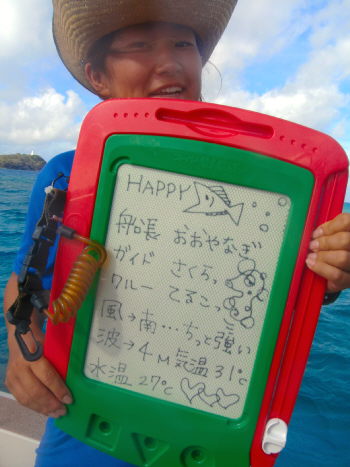 HAPPY
船長 おおやなぎ
ガイド さくらっ
クルー てるこっ
風→南…ちっと強い
波→4M 気温31℃
水温 27℃